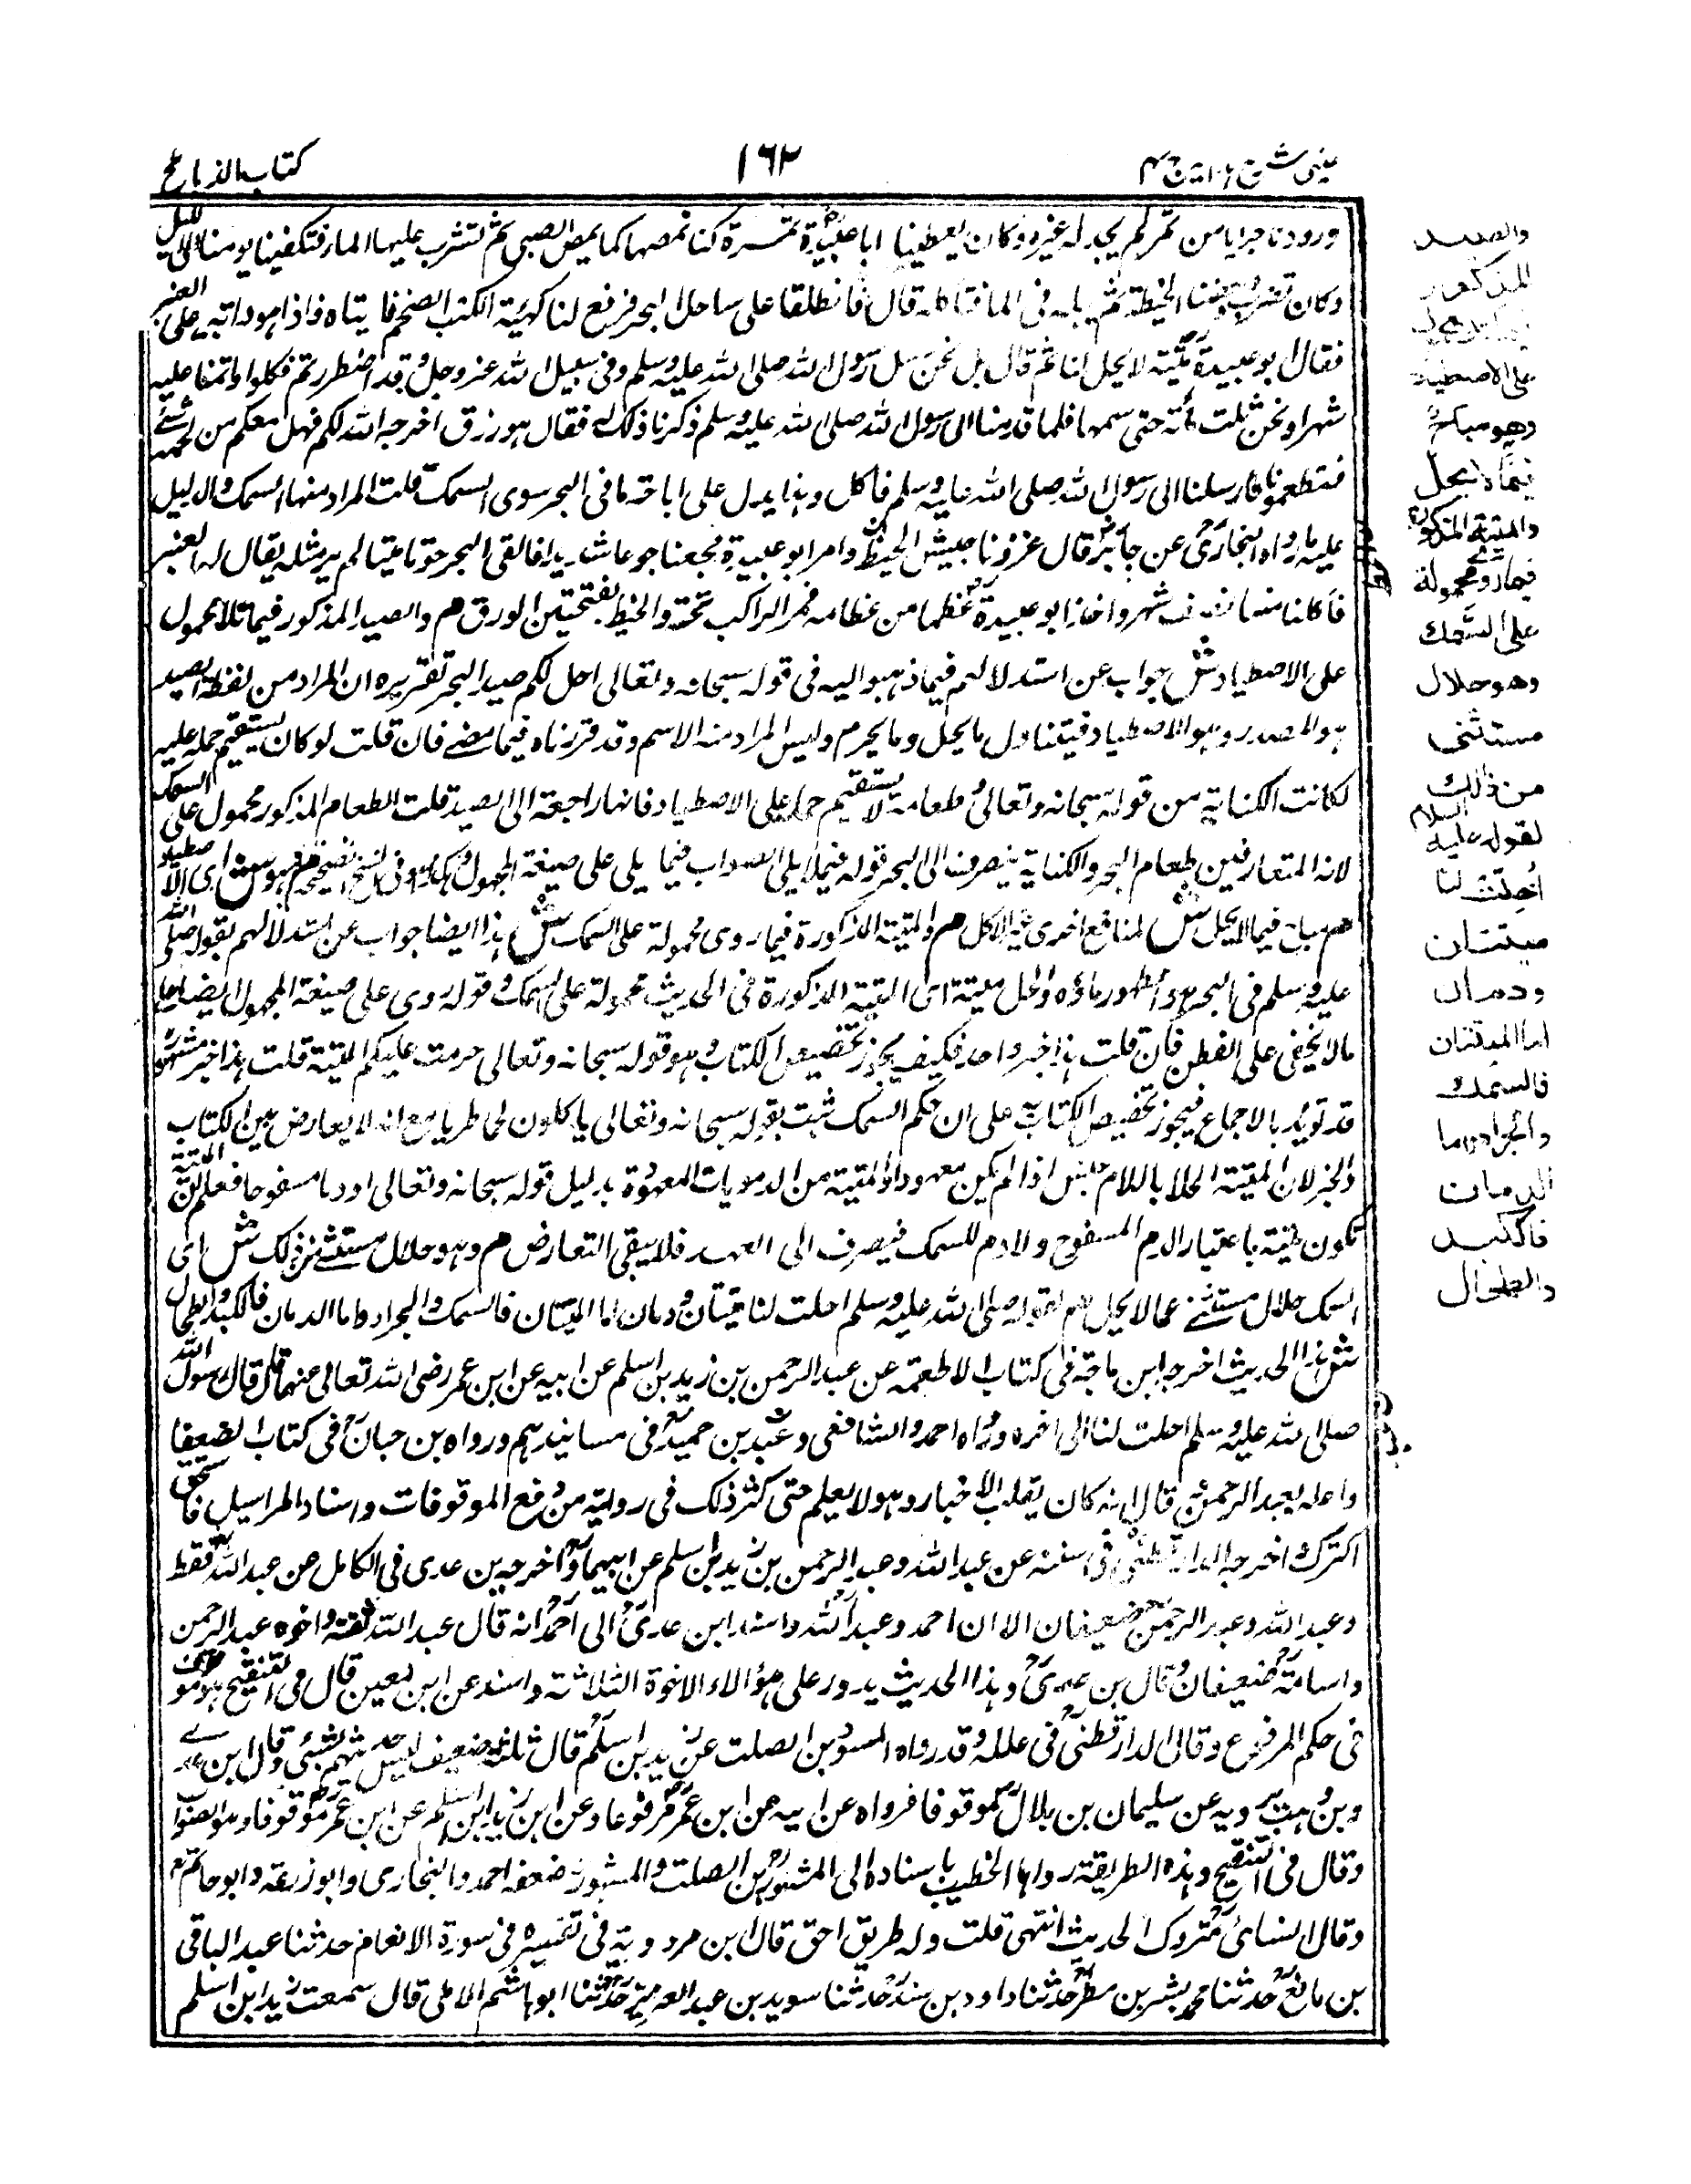 عینی شرح ہدایہ ج ۴
۱۶۲
كتاب الذبائح
وزودنا جرابا من تمر لم يجد له غيره وكان يعطينا ابا عبيدة تمرة تمرة كنا نمصها كما يمص الصبي ثم نشرب عليها الماء فتكفينا يومنا الى الليل
وكان نضرب بعصينا الخبط ثم نبله فى الماء فنأكله قال فانطلقنا على ساحل البحر فرفع لنا كهيئة الكثيب الضخم فاتيناه فاذا هو دابة على العنبر
فقال ابو عبيدة ميتة لا يحل لنا ثم قال بل نحن رسل رسول الله صلى الله عليه وسلم وفى سبيل الله عز وجل وقد اضطررتم فكلوا واقمنا عليه
شهرا ونحن ثلث مائة حتى سمنا فلما قدمنا الى رسول الله صلى الله عليه وسلم ذكرنا ذلك له فقال هو رزق اخرجه الله لكم فهل معكم من لحمه شئ
فتطعمونا فارسلنا الى رسول الله صلى الله عليه وسلم فاكل وهذا يدل على اباحة ما فى البحر سوى السمك قلت المراد منها السمك والدليل
عليه ما رواه البخارى عن جابر قال غزونا جيش الخبط وامر ابو عبيدة فجعنا جوعا شديدا فالقى البحر حوتا ميتا لم ير مثله يقال له العنبر
فاكلنا منه نصف شهر واخذ ابو عبيدة عظما من عظامه فمر الراكب تحته والخبط بفتحتين الورق م والصيد المذكور فيما تلا محمول
على الاصطياد ش جواب عن استدلالهم فيما ذهبوا اليه فى قوله سبحانه وتعالى احل لكم صيد البحر تقريره ان المراد من لفظة الصيد
هو المصدر وهو الاصطياد فيتناول ما يحل وما يحرم وليس المراد منه الاسم وقد قررناه فيما مضى فان قلت لو كان يستقيم حمله عليه
لكانت الكناية من قوله سبحانه وتعالى وطعامه لا يستقيم حمله على الاصطياد فانها راجعة الى الصيد قلت الطعام المذكور محمول على السمك
لانه المتعارفين طعام البحر والكناية ينصرف الى البحر قوله فيما لا يلى الصواب فيما يلى على صيغة المجهول هكذا فى النسخ الصحيحة م وهو ش اى الاصطياد
م مباح فيما لا يحل ش لمنافع اخرى غير الاكل م والميتة المذكورة فيما روى محمولة على السمك ش هذا ايضا جواب عن استدلالهم بقوله صلى الله
عليه وسلم فى البحر هو الطهور ماؤه والحل ميتته اى الميتة المذكورة فى الحديث محمولة على السمك وقوله روى على صيغة المجهول ايضا على
ما لا يخفى على الفطن فان قلت هذا خبر واحد فكيف يجوز تخصيص الكتاب وهو قوله سبحانه وتعالى حرمت عليكم الميتة قلت هذا خبر مشهور
قد تؤيد بالاجماع فيجوز تخصيص الكتاب به على ان حكم السمك ثبت بقوله سبحانه وتعالى ياكلون لحما طريا مع انه لا يعارض بين الكتاب
والخبر لان الميتة المحلاة باللام جنس اذا لم يكن معهودا والميتة من الدمويات المعهودة بدليل قوله سبحانه وتعالى او دما مسفوحا فعلم ان الميتة
تكون ميتة باعتبار الدم المسفوح ولا دم للسمك فيصرف الى العهد فلا يبقى التعارض م وهو حلال مستثنى من ذلك ش اى
السمك حلال مستثنى عما لا يحل م لقوله صلى الله عليه وسلم احلت لنا ميتتان ودمان اما الميتتان فالسمك والجراد واما الدمان فالكبد والطحال
ش هذا الحديث اخرجه ابن ماجة فى كتاب الاطعمة عن عبد الرحمن بن زيد بن اسلم عن ابيه عن ابن عمر رضى الله تعالى عنهما قال قال رسول الله
صلى الله عليه وسلم احلت لنا الى اخره ورواه احمد والشافعى وعبد بن حميد فى مسانيدهم ورواه بن حبان فى كتاب الضعفا
واعله بعبد الرحمن قال انه كان يقلب الاخبار وهو لا يعلم حتى كثر ذلك فى روايته من رفع الموقوفات واسناد المراسيل فاستحق
الترك اخرجه الدارقطنى فى سننه عن عبد الله وعبد الرحمن بن زيد بن اسلم عن ابيهما واخرجه بن عدى فى الكامل عن عبد الله فقط
وعبد الله وعبد الرحمن ضعيفان الا ان احمد وعبد الله واسند ابن عدى الى احمد انه قال عبد الله ثقة واخوه عبد الرحمن
واسامة ضعيفان وقال بن عدى وهذا الحديث يدور على هؤلاء الاخوة الثلاثة واسند عن ابن معين قال فى التنقيح هو موقوف
فى حكم المرفوع وقال الدارقطنى فى علله وقد رواه المسور بن الصلت عن زيد بن اسلم قال ثلثة ضعيف ليس حديثهم بشئ وقال ابن عدى
عن سليمان بن بلال موقوفا فرواه عن ابيه عن ابن عمر مرفوعا وعن ابن زيد ابن اسلم عن ابن عمر موقوفا وهو الصواب
وقال فى التنقيح وهذه الطريقة رواها الخطيب باسناده الى المسور بن الصلت والمسور ضعفه احمد والبخارى وابو زرعة وابو حاتم
وقال النسائى متروك الحديث انتهى قلت وله طريق احق قال ابن مردويه فى تفسيره فى سورة الانعام حدثنا عبد الباقى
بن مانع حدثنا محمد بشر بن مطر حدثنا داود بن سند حدثنا سويد بن عبد العزيز حدثنا ابو هاشم الاملى قال سمعت زيد ابن اسلم
والصيد
المذكور
على الاصطياد
وهو مباح
فيما لا يحل
والميتة المذكورة
فيما روى محمولة
على السمك
وهو حلال
مستثنى
من ذلك
لقوله عليه السلام
أحلت لنا
ميتتان
ودمان
اما الميتتان
فالسمك
والجراد واما
الدمان
فالكبد
والطحال